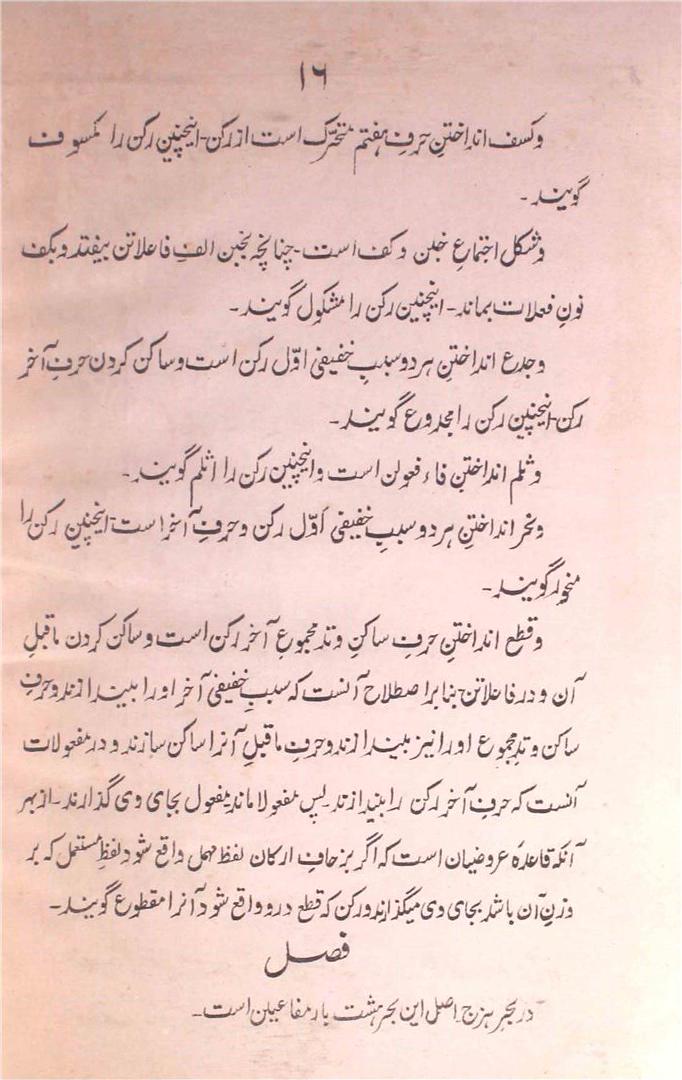 ۱۶
وکسف انداختنِ حرفِ ہفتم متحرّک است از رکن۔ اینچنین رکن را مکسوف
گویند۔
وشکل اجتماعِ خبن وکف است۔ چنانچہ بخبن الفِ فاعلاتن بیفتد و بکف
نونِ فعلات بماند۔ اینچنین رکن را مشکول گویند۔
وجدع انداختنِ ہر دو سببِ خفیفی اوّل رکن است و ساکن کردن حرفِ آخر
رکن۔ اینچنین رکن را مجدوع گویند۔
وثلم انداختن فاء فعولن است و اینچنین رکن را اثلم گویند۔
ونحر انداختنِ ہر دو سببِ خفیفی اَوّل رکن و حرفِ آخر است۔ اینچنین رکن را
منحور گویند۔
وقطع انداختنِ حرفِ ساکنِ وتد مجموعِ آخر رکن است و ساکن کردن ماقبلِ
آن و در فاعلاتن بنا بر اصطلاح آنست کہ سببِ خفیفی آخر او را بیندازند و حرفِ
ساکن وتدِ مجموع او را نیز بیندازند و حرفِ ماقبلِ آنرا ساکن سازند و در مفعولات
آنست کہ حرفِ آخر رکن را بیندازند۔ پس مفعولا ماند مفعول بجای وی گذارند۔ از بہر
آنکہ قاعدہٗ عروضیان است کہ اگر بزحافِ ارکان لفظِ مہمل واقع شود لفظِ مستعمل کہ بر
وزنِ آن باشد بجای وی میگذارند و رکن کہ قطع درو واقع شود آنرا مقطوع گویند۔
فصل
در بحرِ ہزج۔ اصل این بحر ہشت بار مفاعیلن است۔